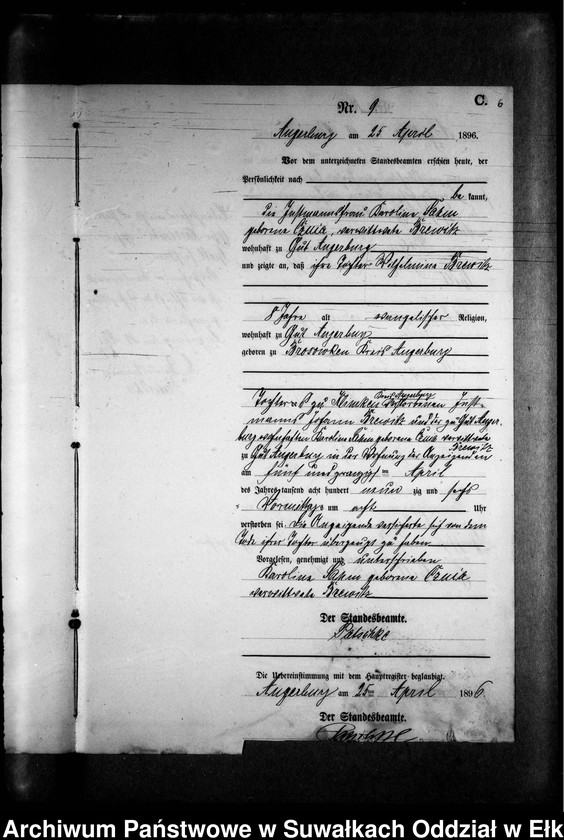 C. 6
Nr. 9.
Angerburg am 25 April 1896.
Vor dem unterzeichneten Standesbeamten erschien heute, der
Persönlichkeit nach
be kannt,
die Instmannsfrau Karoline
geborene Czuia, verwittwete Brewitz
wohnhaft zu Gut Angerburg
und zeigte an, daß ihre Tochter Wilhelmine Brewitz
8 Jahre alt evangelischer Religion,
wohnhaft zu Gut Angerburg
geboren zu Brosowken Kreis Angerburg
Kreis Angerburg
Tochter des zu verstorbenen Inst-
manns Johann Brewitz und der zu Gut Anger-
burg wohnhaften Karoline geborene Czuia verwittwete
Brewitz
zu Gut Angerburg in der Wohnung der Anzeigenden
am fünf und zwanzigsten April
des Jahres tausend acht hundert neun zig und sechs
Vormittags um acht Uhr
verstorben sei. Die Anzeigende versicherte sich von dem
Tode ihrer Tochter überzeugt zu haben.
Vorgelesen, genehmigt und unterschrieben
Karoline geborene Czuia
verwittwete Brewitz
Der Standesbeamte.
Patschke
Die Uebereinstimmung mit dem Hauptregister beglaubigt.
Angerburg am 25ten April 1896
Der Standesbeamte.
Patschke
Archiwum Państwowe w Suwałkach Oddział w Ełk